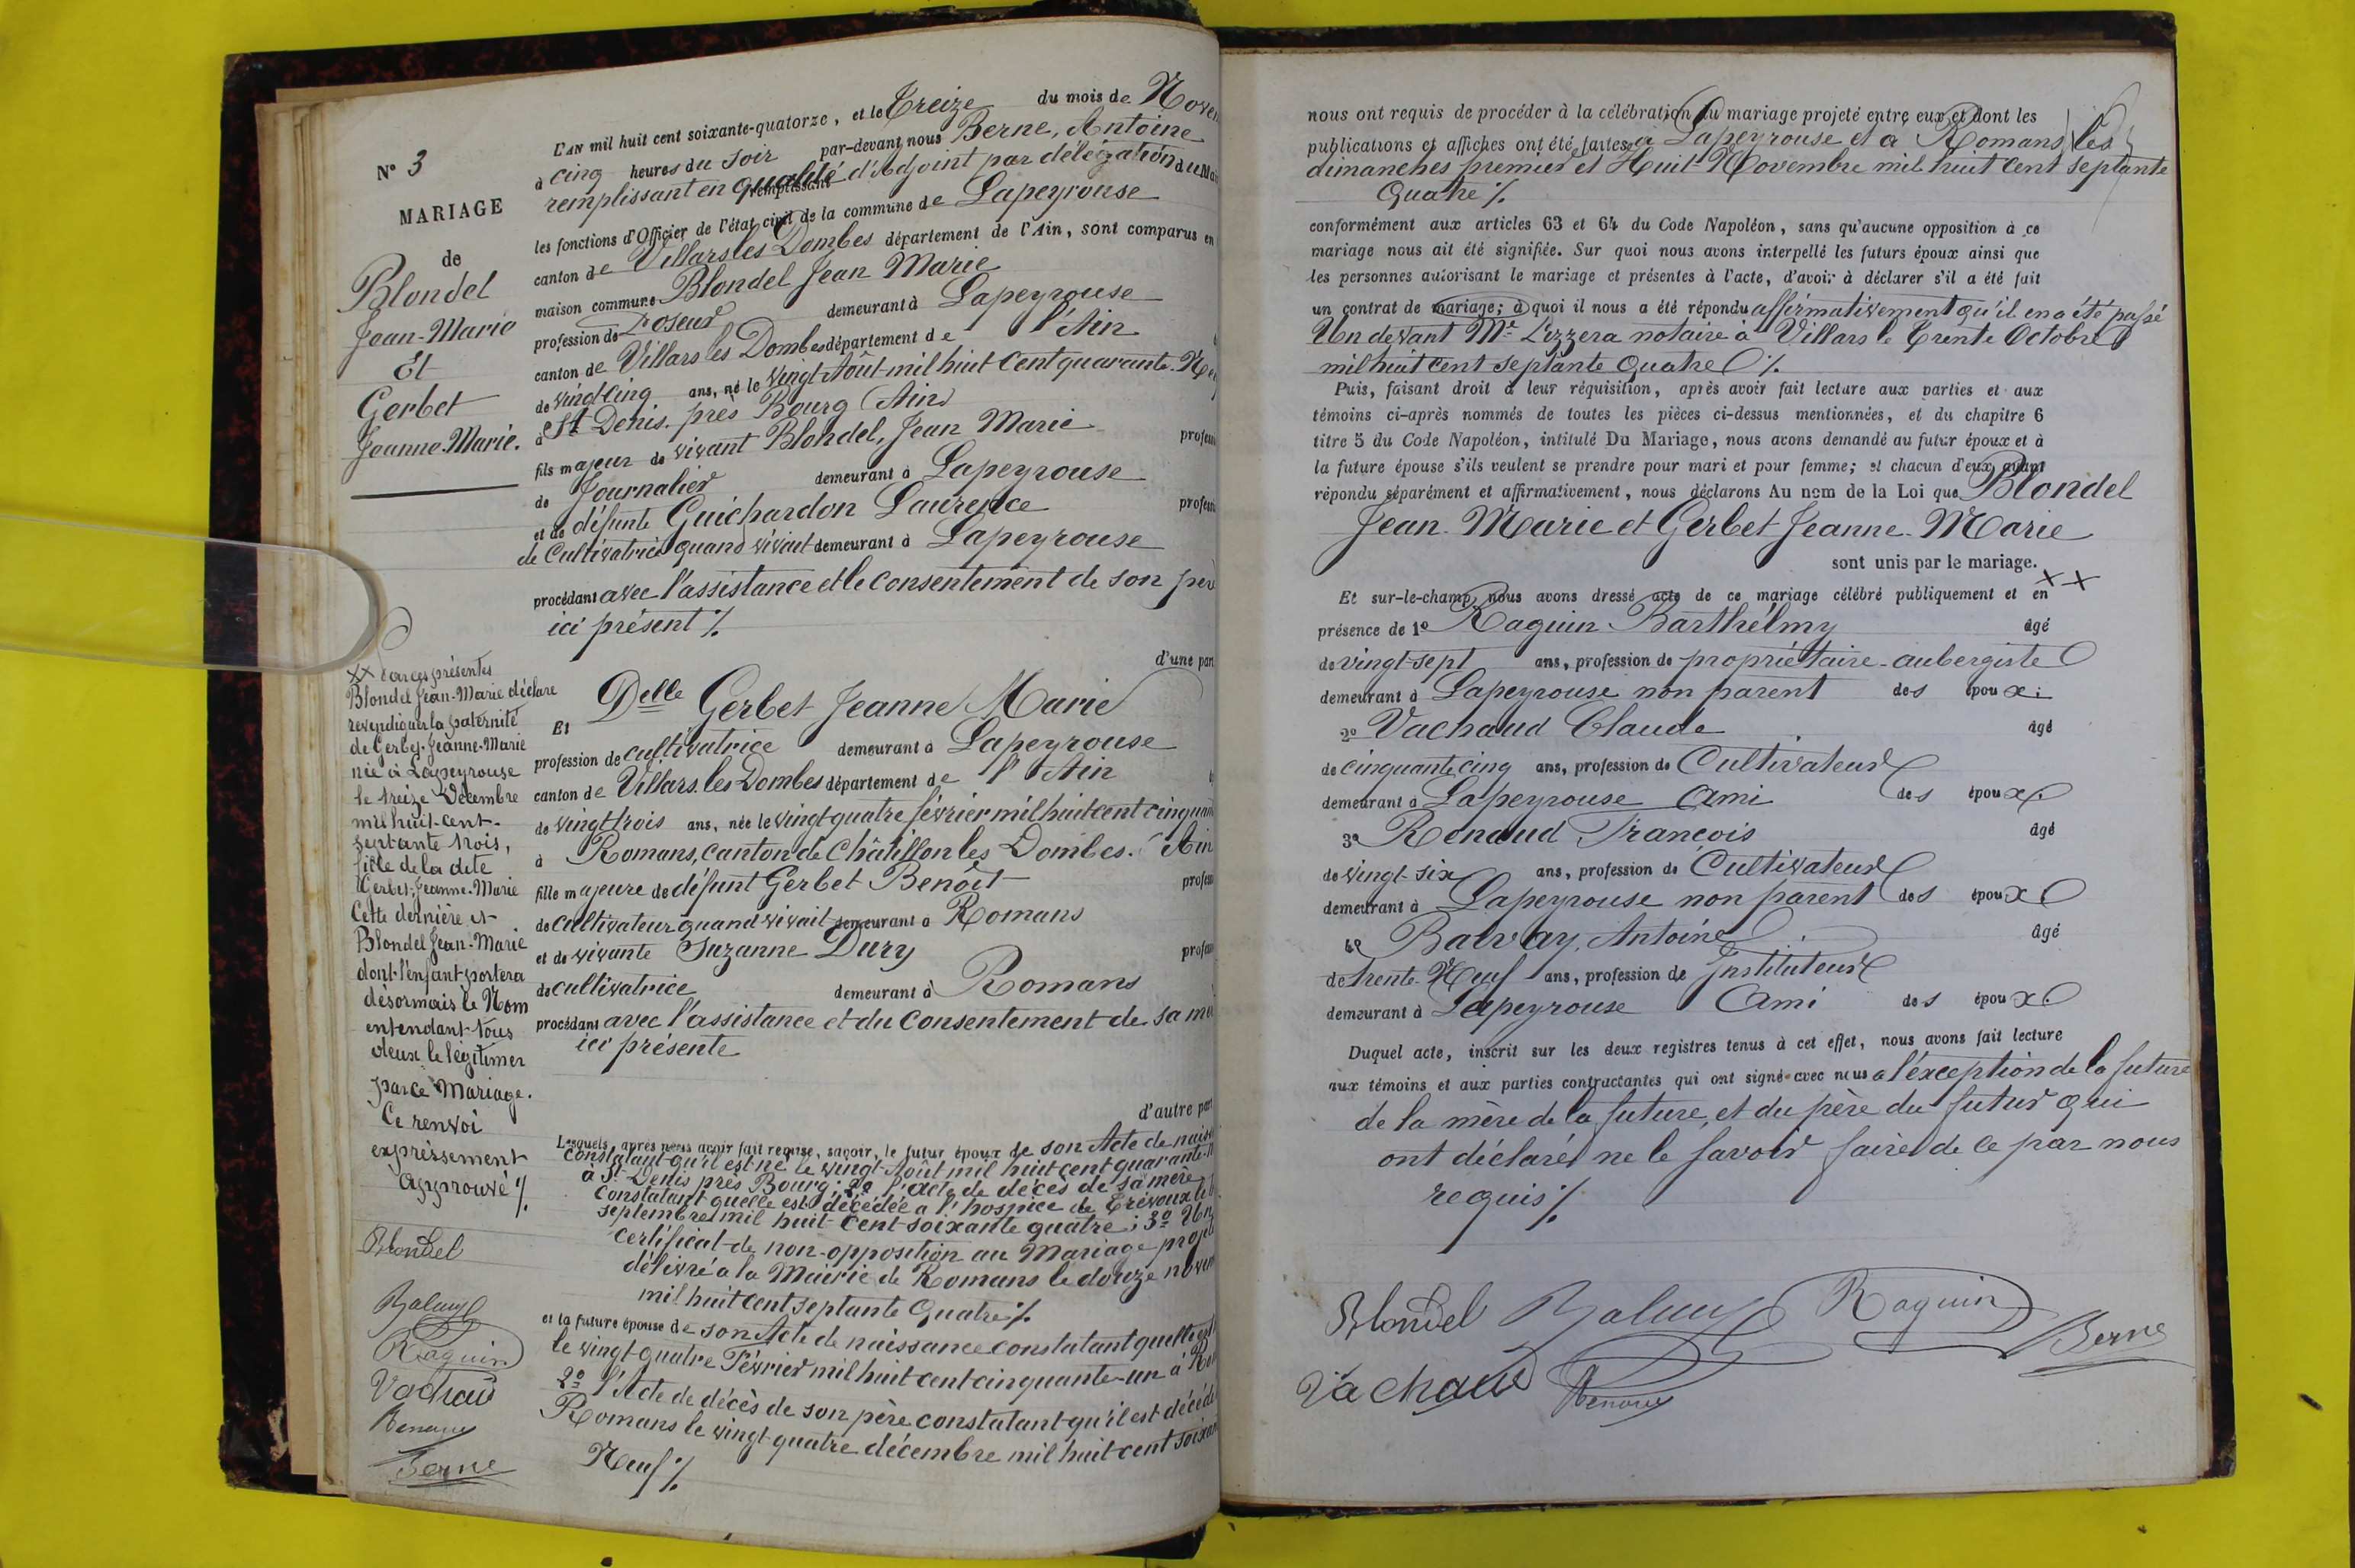 N° 3
MARIAGE
de
Blondel
Jean-Marie
Et
Gerbet
Jeanne-Marie.
L'AN mil huit cent soixante-quatorze, et le Treize du mois de Novem
à cinq heures du soir par-devant nous Berne, Antoine
remplissant en qualité d'Adjoint par délégation du Mai
remplissant
les fonctions d'Officier de l'état civil de la commune de Lapeyrouse
canton de Villars les Dombes département de l'Ain, sont comparus en
maison commune Blondel Jean Marie
profession de Poseur demeurant à Lapeyrouse
canton de Villars les Dombes département de l'Ain
de vingt-cinq ans, né le vingt Août mil huit cent quarante-Neu
à St Denis près Bourg (Ain)
fils majeur de vivant Blondel, Jean Marie profession
de Journalier demeurant à Lapeyrouse
et de défunte Guichardon Laurence profession
de Cultivatrice quand vivait demeurant à Lapeyrouse
procédant avec l'assistance et le consentement de son père
ici présent %
d'une part
Et Delle Gerbet Jeanne Marie
profession de cultivatrice demeurant à Lapeyrouse
canton de Villars les Dombes département de l'Ain
de vingt-trois ans, née le vingt-quatre février mil huit cent cinquan
à Romans, canton de Châtillon les Dombes. Ain
fille majeure de défunt Gerbet Benoît profess
de cultivateur quand vivait demeurant à Romans
et de vivante Suzanne Dury profess
de cultivatrice demeurant à Romans
procédant avec l'assistance et du consentement de sa mè
ici présente
d'autre part
Lesquels, après nous avoir fait remise, savoir, le futur époux de son Acte de naiss
constatant qu'il est né le vingt Août mil huit cent quarante-n
à St Denis près Bourg; 2° l'acte de décès de sa mère
constatant quelle est décédée à l'hospice de Trévoux le
septembre mil huit-cent-soixante quatre; 3° Un
certificat de non-opposition au Mariage proje
délivré à la Mairie de Romans le douze novem
mil huit cent septante Quatre %
et la future épouse de son Acte de naissance constatant quelle est
le vingt-quatre Février mil huit cent cinquante-un à Rom
2° l'Acte de décès de son père constatant qu'il est décédé
Romans le vingt-quatre décembre mil huit-cent soixan
Neuf %
XX Par ces présentes
Blondel Jean-Marie déclare
revendiquer la paternité
de Gerbet Jeanne-Marie
née à Lapeyrouse
le treize Décembre
mil huit-cent-
septante trois,
fille de la dite
Gerbet Jeanne-Marie
Cette dernière et
Blondel Jean-Marie
dont l'enfant portera
désormais le Nom
entendant tous
deux le légitimer
par ce Mariage.
Ce renvoi
expressement
approuvé %
Blondel
Balvay
Raguin
Vachaud
Renaud
Berne
nous ont requis de procéder à la célébration du mariage projeté entre eux et dont les
publications et affiches ont été faites à Lapeyrouse et à Romans les
dimanches premier et Huit Novembre mil huit cent septante
Quatre %
conformément aux articles 63 et 64 du Code Napoléon, sans qu'aucune opposition à ce
mariage nous ait été signifiée. Sur quoi nous avons interpellé les futurs époux ainsi que
les personnes autorisant le mariage et présentes à l'acte, d'avoir à déclarer s'il a été fait
un contrat de mariage; à quoi il nous a été répondu affirmativement qu'il en a été passé
Un devant Me Lizzera notaire à Villars le Trente Octobre
mil huit cent septante Quatre %
Puis, faisant droit à leur réquisition, après avoir fait lecture aux parties et aux
témoins ci-après nommés de toutes les pièces ci-dessus mentionnées, et du chapitre 6
titre 5 du Code Napoléon, intitulé Du Mariage, nous avons demandé au futur époux et à
la future épouse s'ils veulent se prendre pour mari et pour femme; et chacun d'eux ayant
répondu séparément et affirmativement, nous déclarons Au nom de la Loi que Blondel
Jean-Marie et Gerbet Jeanne-Marie
sont unis par le mariage.
Et sur-le-champ nous avons dressé acte de ce mariage célébré publiquement et en XX
présence de 1° Raguin Barthélmy âgé
de vingt-sept ans, profession de propriétaire-aubergiste
demeurant à Lapeyrouse non parent des époux;
2° Vachaud Claude âgé
de cinquante cinq ans, profession de Cultivateur
demeurant à Lapeyrouse Ami des époux;
3° Renaud François âgé
de vingt-six ans, profession de Cultivateur
demeurant à Lapeyrouse non parent des époux
4° Balvay, Antoine âgé
de trente-Neuf ans, profession de Instituteur
demeurant à Lapeyrouse Ami des époux.
Duquel acte, inscrit sur les deux registres tenus à cet effet, nous avons fait lecture
aux témoins et aux parties contractantes qui ont signé avec nous à l'exception de la future
de la mère de la future, et du père du futur qui
ont déclaré ne le savoir faire de ce par nous
requis %
Blondel Balvay Raguin Berne
Vachaud Renaud